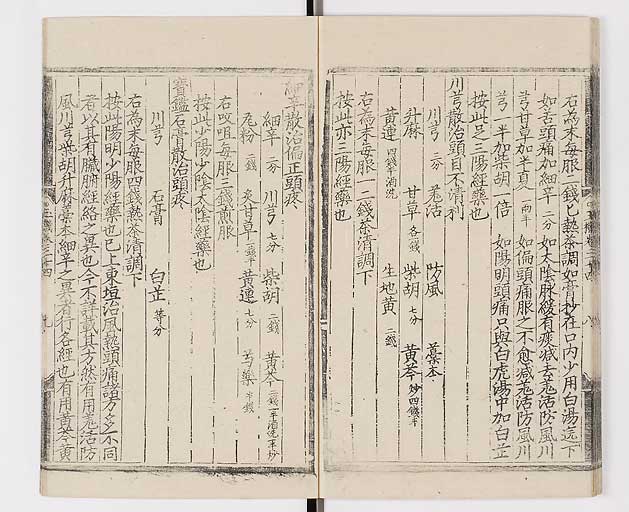 右為末每服二錢匕熱茶調如膏抄在口內少用白湯送下
如苦頭痛加細辛二分如太陰脉緩有痰減去羌活防風川
芎甘草加半夏一兩半如偏頭痛服之不愈減羌活防風川
芎一半加柴胡一倍如陽明頭痛只與白虎湯中加白芷
按此足三陽經藥也
川芎散治頭目不清利
川芎三分羌活防風藁本
升麻甘草各錢柴胡七分黃芩炒四錢半
黃連四錢半酒洗生地黃二錢
右為末每服一二錢茶清調下
按此亦三陽經藥也
細辛散治偏正頭疼
細辛二分川芎七分柴胡二錢黃芩
瓦粉二錢炙甘草黃連七分芍藥半錢
右㕮咀每服三錢煎服
按此少陽少陰太陰經藥也
寶鑑石膏散治頭疼
川芎石膏白芷等分
右為末每服四錢熱茶清調下
按此陽明少陽經藥也已上東垣治風熱頭痛諸方多不同
者以其有臟腑經絡之異也今不詳載其方然有用羌活防
風川芎柴胡升麻藁本細辛之異者行各經也有用黃芩黃